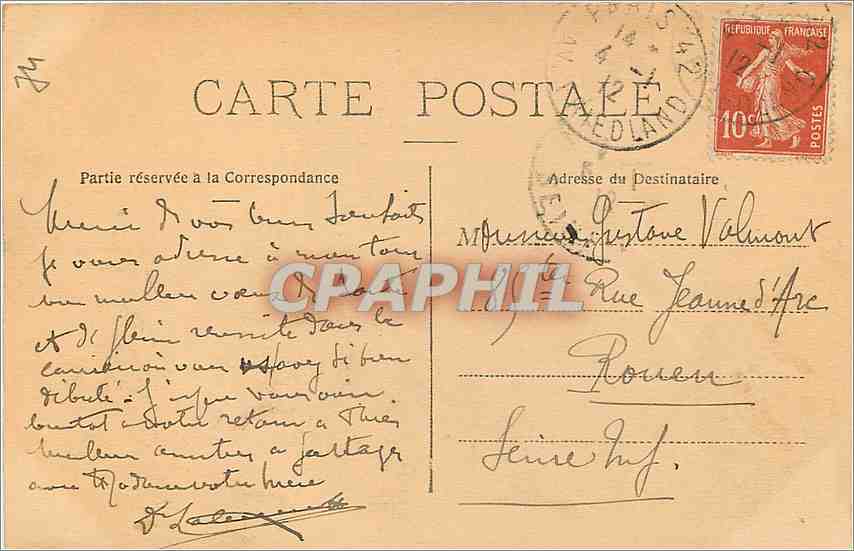 CARTE POSTALE
Partie réservée à la Correspondance
Merci de vos bons souhaits
je vous adresse à mon tour
vos meilleurs vœux de
et de pleine réussite dans la
carrière où vous avez si bien
débuté. J'espère vous voir
bientôt à votre retour à
Meilleures amitiés à partager
avec Madame votre mère
Dr
Adresse du Destinataire
Monsieur Gustave Valmont
Rue Jeanne d'Arc
Rouen
Seine Inf.
PARIS 42
14
4 - 1
12
FRIEDLAND
REPUBLIQUE FRANÇAISE
10c
POSTES
CPAPHIL